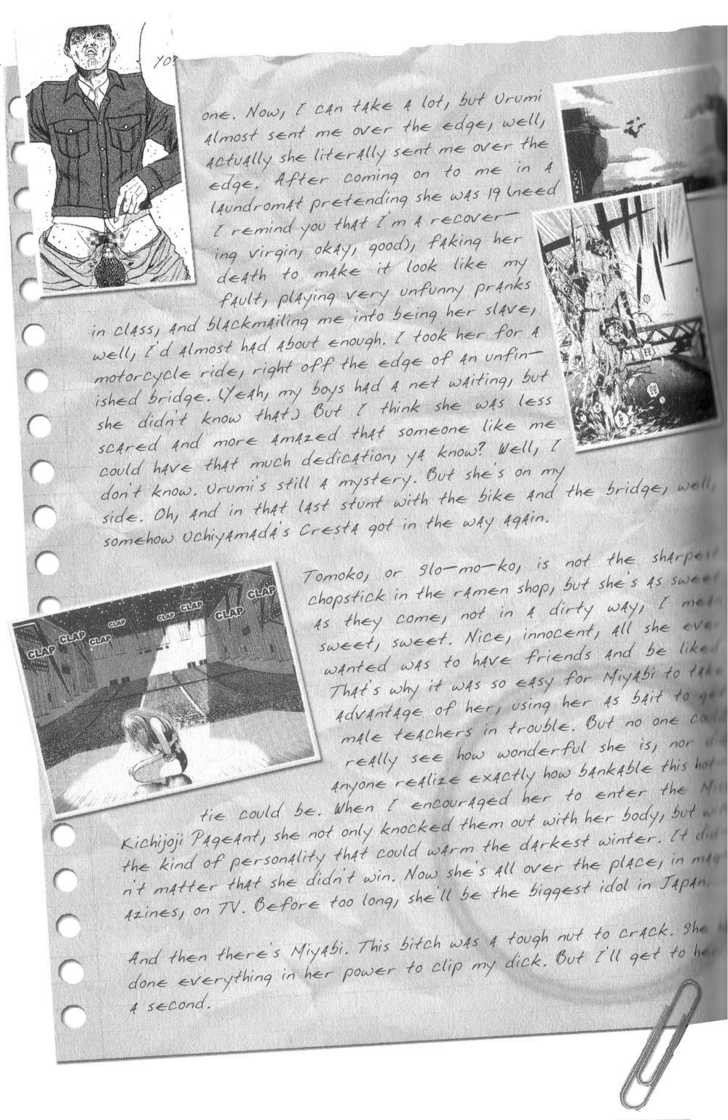 YO?
one. Now, I can take a lot, but Urumi
almost sent me over the edge, well,
actually she literally sent me over the
edge. After coming on to me in a
laundromat pretending she was 19 (need
I remind you that I'm a recover—
ing virgin, okay, good), faking her
death to make it look like my
fault, playing very unfunny pranks
in class, and blackmailing me into being her slave,
well, I'd almost had about enough. I took her for a
motorcycle ride, right off the edge of an unfin—
ished bridge. (Yeah, my boys had a net waiting, but
she didn't know that.) But I think she was less
scared and more amazed that someone like me
could have that much dedication, ya know? Well, I
don't know. Urumi's still a mystery. But she's on my
side. Oh, and in that last stunt with the bike and the bridge, well,
somehow Uchiyamada's Cresta got in the way again.
CLAP CLAP CLAP CLAP CLAP CLAP CLAP
Tomoko, or slo—mo—ko, is not the sharpest
chopstick in the ramen shop, but she's as sweet
as they come, not in a dirty way, I
sweet, sweet. Nice, innocent, all she ever
wanted was to have friends and be liked
That's why it was so easy for Miyabi to take
advantage of her, using her as bait to
male teachers in trouble. But no one
really see how wonderful she is, nor
anyone realize exactly how bankable this
tie could be. When I encouraged her to enter the
Kichijoji Pageant, she not only knocked them out with her body, but
the kind of personality that could warm the darkest winter. It
n't matter that she didn't win. Now she's all over the place, in
azines, on TV. Before too long, she'll be the biggest idol in Japan.
And then there's Miyabi. This bitch was a tough nut to crack. She
done everything in her power to clip my dick. But I'll get to
a second.